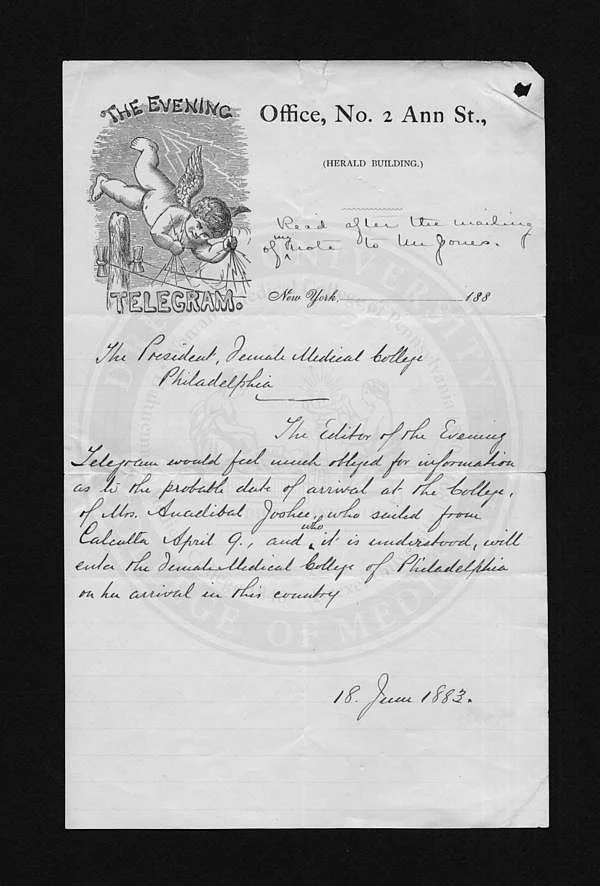 THE EVENING
TELEGRAM.
Office, No. 2 Ann St.,
(HERALD BUILDING.)
Read after the mailing
of my note to Mr Jones.
New York, 188
The President, Female Medical College
Philadelphia
The Editor of the Evening
Telegram would feel much obliged for information
as to the probable date of arrival at the College,
of Mrs. Anadibal Joshee, who sailed from
Calcutta April 9., and who, it is understood, will
enter the Female Medical College of Philadelphia
on her arrival in this country
18. June 1883.